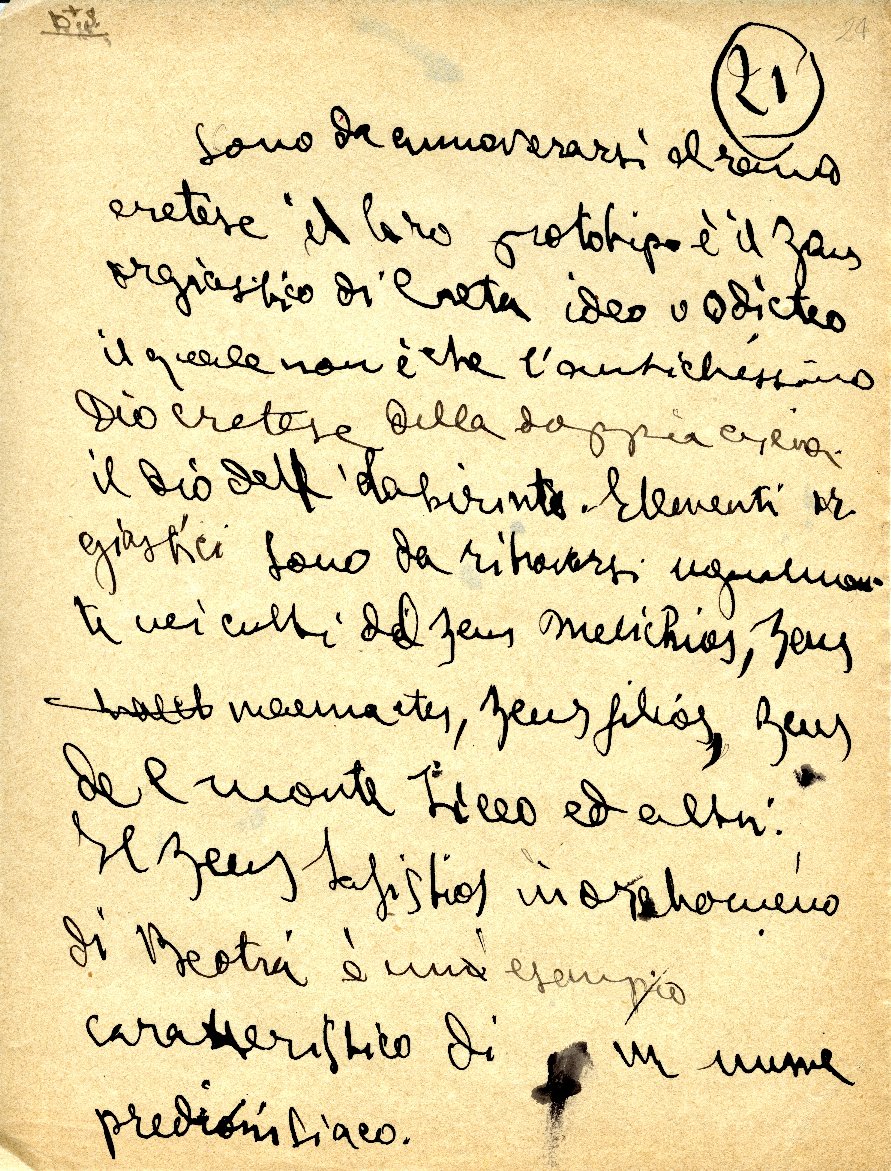 21
24
sono da annoverarsi al ramo
cretese il loro prototipo è il Zeus
orgiastico di Creta ideo o dicteo
il quale non è che l'antichissimo
Dio cretese della doppia
il dio dell' labirinto. Elementi or-
giastici sono da ritrovarsi ugualmen-
te nei culti del Zeus Meilichios, Zeus
maemactes, Zeus filios, Zeus
del monte Liceo ed altri.
Il Zeus Lafistios in orchomeno
di Beotia è un esempio
caratteristico di un nume
predionisiaco.